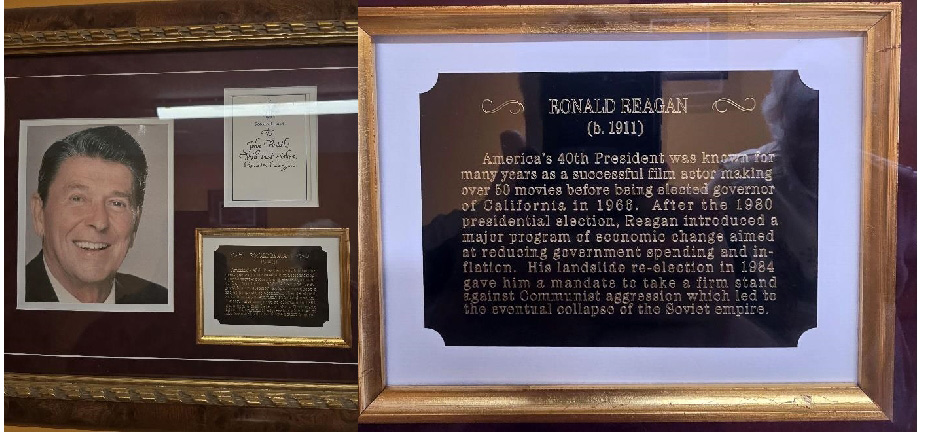 To
With best wishes,
Ronald Reagan
RONALD REAGAN
(b. 1911)
America's 40th President was known for
many years as a successful film actor making
over 50 movies before being elected governor
of California in 1966. After the 1980
presidential election, Reagan introduced a
major program of economic change aimed
at reducing government spending and in-
flation. His landslide re-election in 1984
gave him a mandate to take a firm stand
against Communist aggression which led to
the eventual collapse of the Soviet empire.